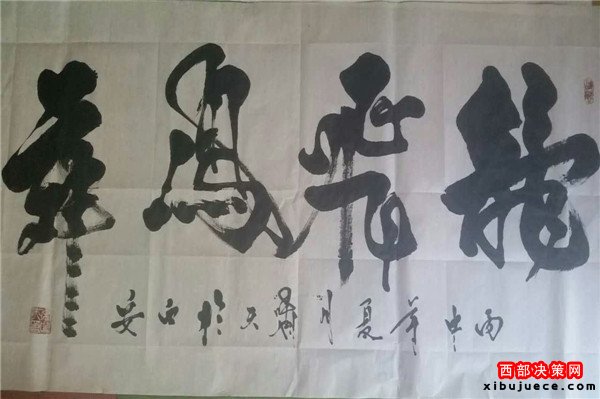 龍飛鳳舞
丙申年夏月天於西安
西部决策网
xibujuece.com